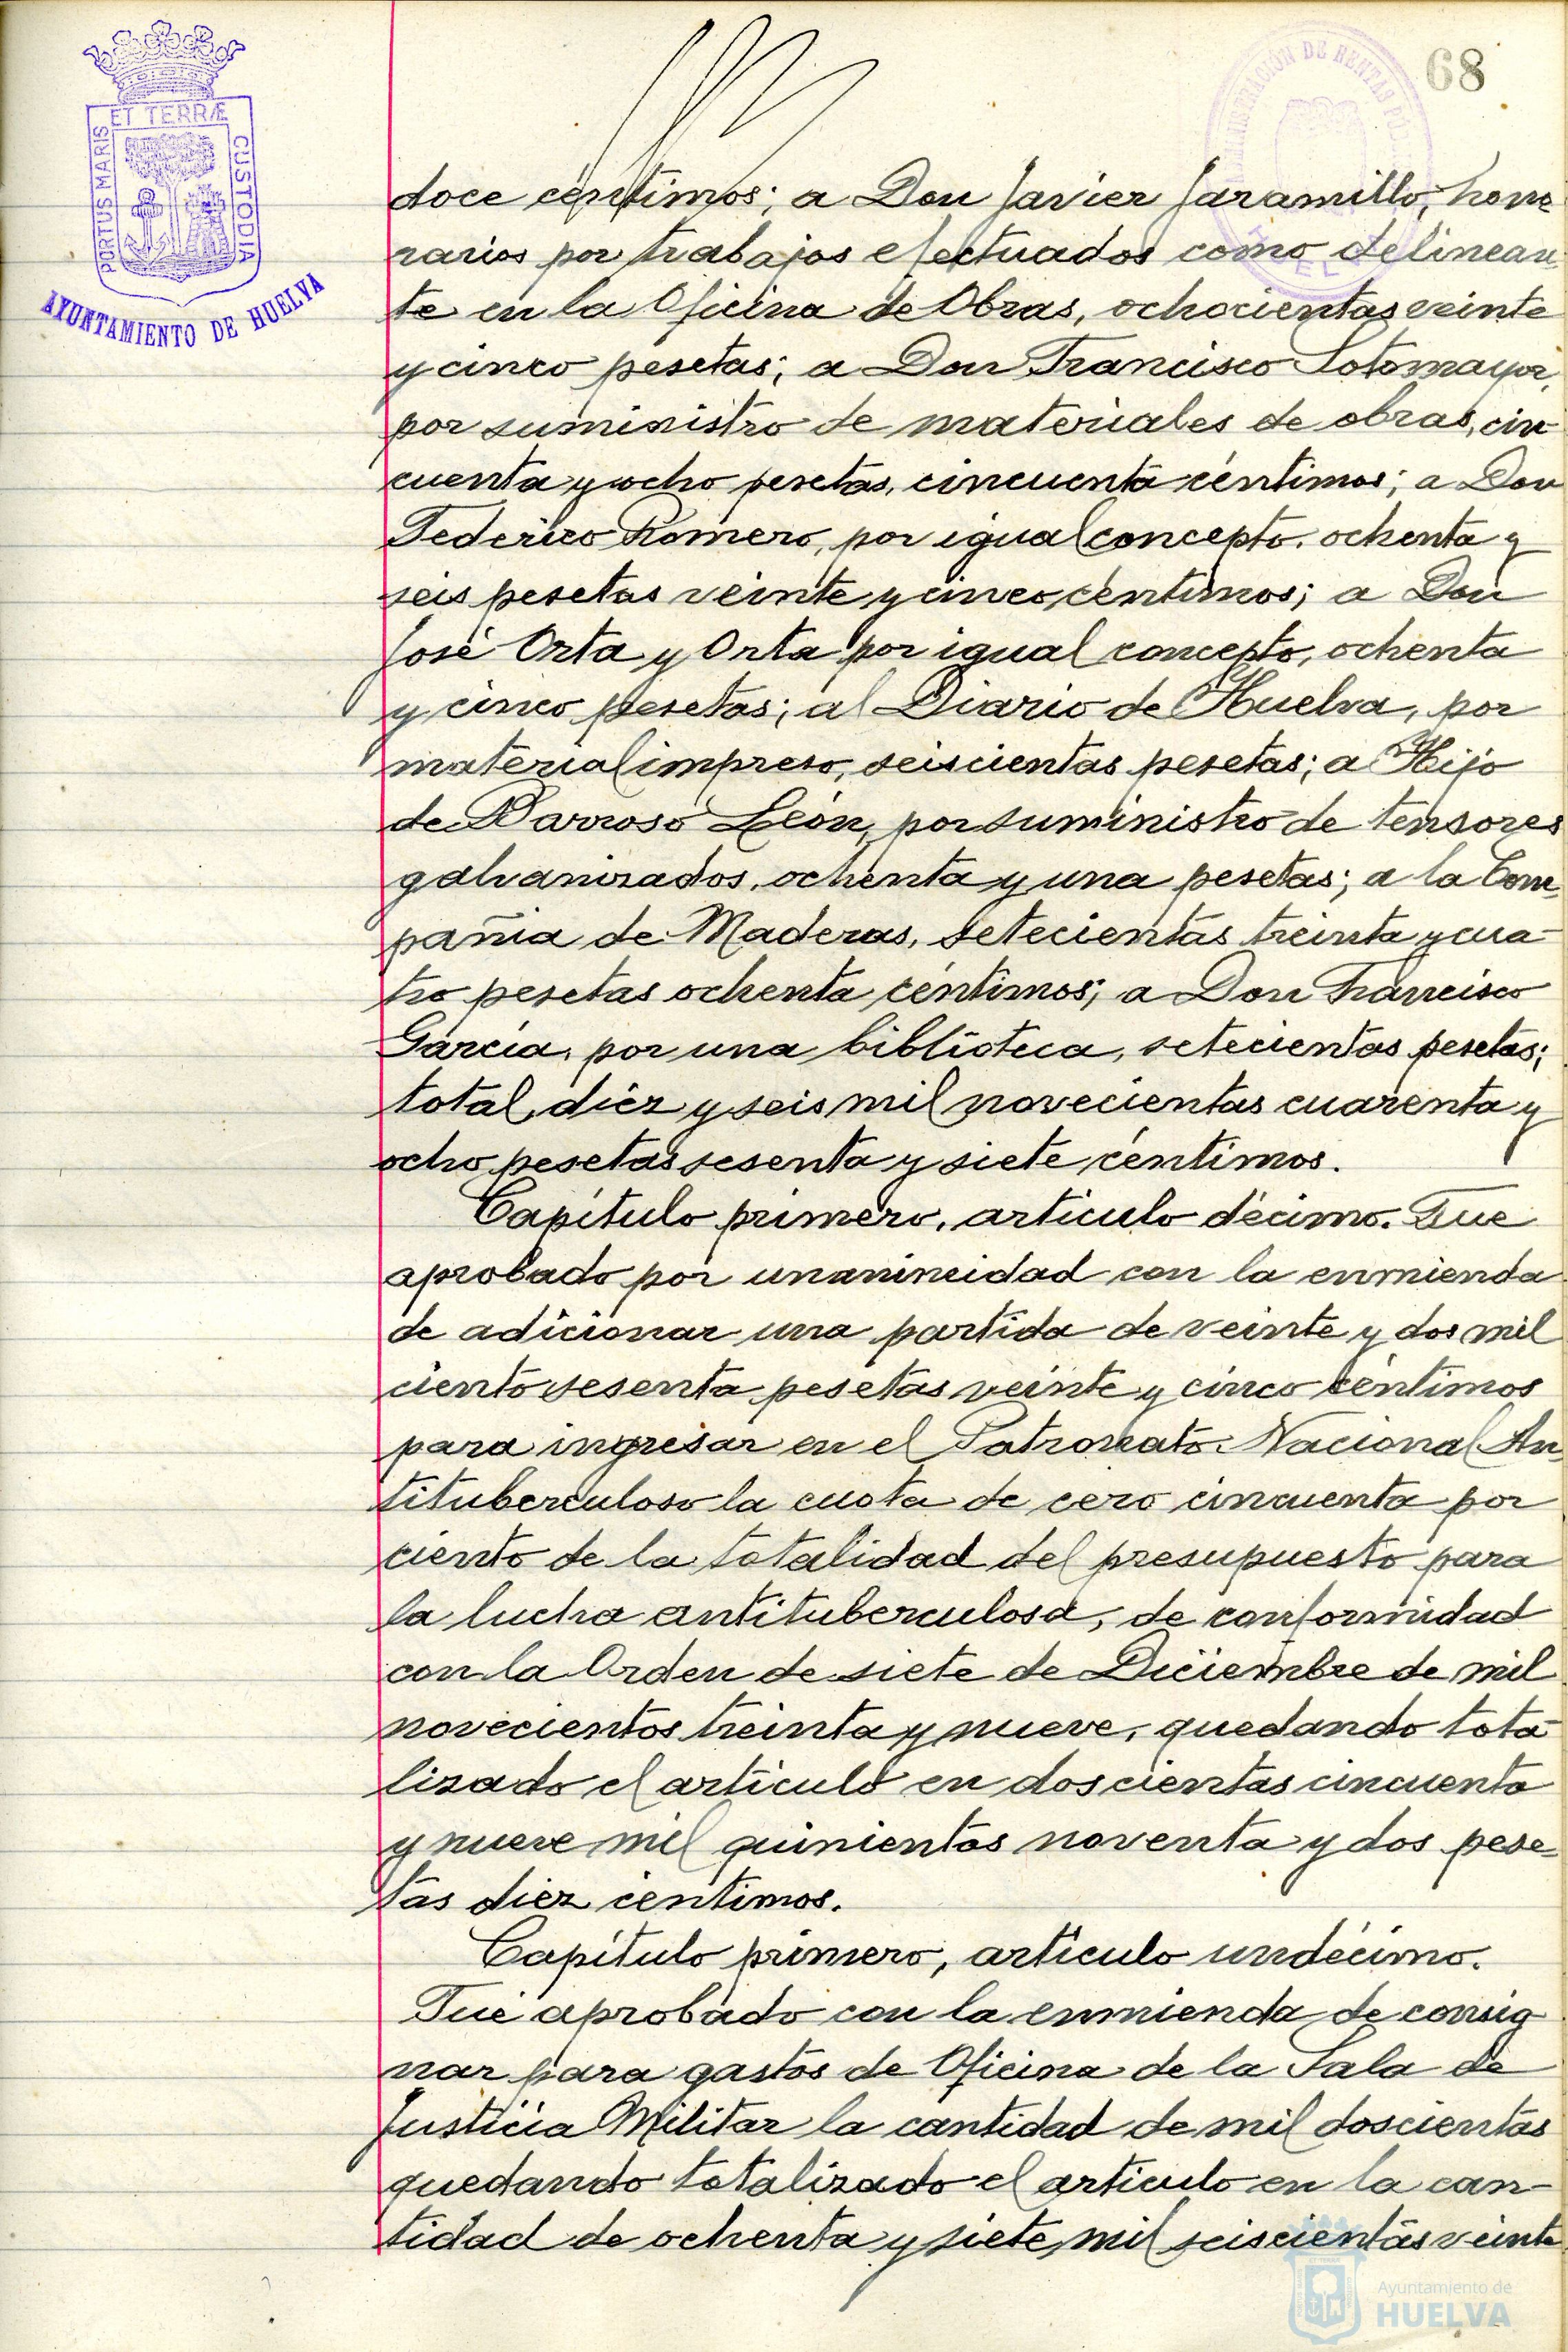 68
ET TERRÆ
PORTUS MARIS
CUSTODIA
AYUNTAMIENTO DE HUELVA
ADMINISTRACIÓN DE RENTAS PÚB
HUELVA
doce céntimos; a Don Javier Jaramillo, hono-
rarios por trabajos efectuados como delinean-
te en la Oficina de Obras, ochocientas veinte
y cinco pesetas; a Don Francisco Sotomayor,
por suministro de materiales de obras, cin-
cuenta y ocho pesetas, cincuenta céntimos; a Don
Federico Romero, por igual concepto, ochenta y
seis pesetas veinte y cinco céntimos; a Don
José Orta y Orta por igual concepto, ochenta
y cinco pesetas; al Diario de Huelva, por
material impreso, seiscientas pesetas; a Hijo
de Barroso León, por suministro de tensores
galvanizados, ochenta y una pesetas; a la Com-
pañia de Maderas, setecientas treinta y cua-
tro pesetas ochenta céntimos; a Don Francisco
García, por una biblioteca, setecientas pesetas;
total, diez y seis mil novecientas cuarenta y
ocho pesetas sesenta y siete céntimos.
Capítulo primero, artículo décimo. Fue
aprobado por unanimidad con la enmienda
de adicionar una partida de veinte y dos mil
ciento sesenta pesetas veinte y cinco céntimos
para ingresar en el Patronato Nacional An-
tituberculoso la cuota de cero cincuenta por
ciento de la totalidad del presupuesto para
la lucha antituberculosa, de conformidad
con la Orden de siete de Diciembre de mil
novecientos treinta y nueve, quedando tota-
lizado el artículo en doscientas cincuenta
y nueve mil quinientas noventa y dos pese-
tas diez céntimos.
Capítulo primero, artículo undécimo.
Fué aprobado con la enmienda de consig-
nar para gastos de Oficina de la Sala de
Justicia Militar la cantidad de mil doscientas
quedando totalizado el artículo en la can-
tidad de ochenta y siete mil seiscientas veinte
Ayuntamiento de
HUELVA